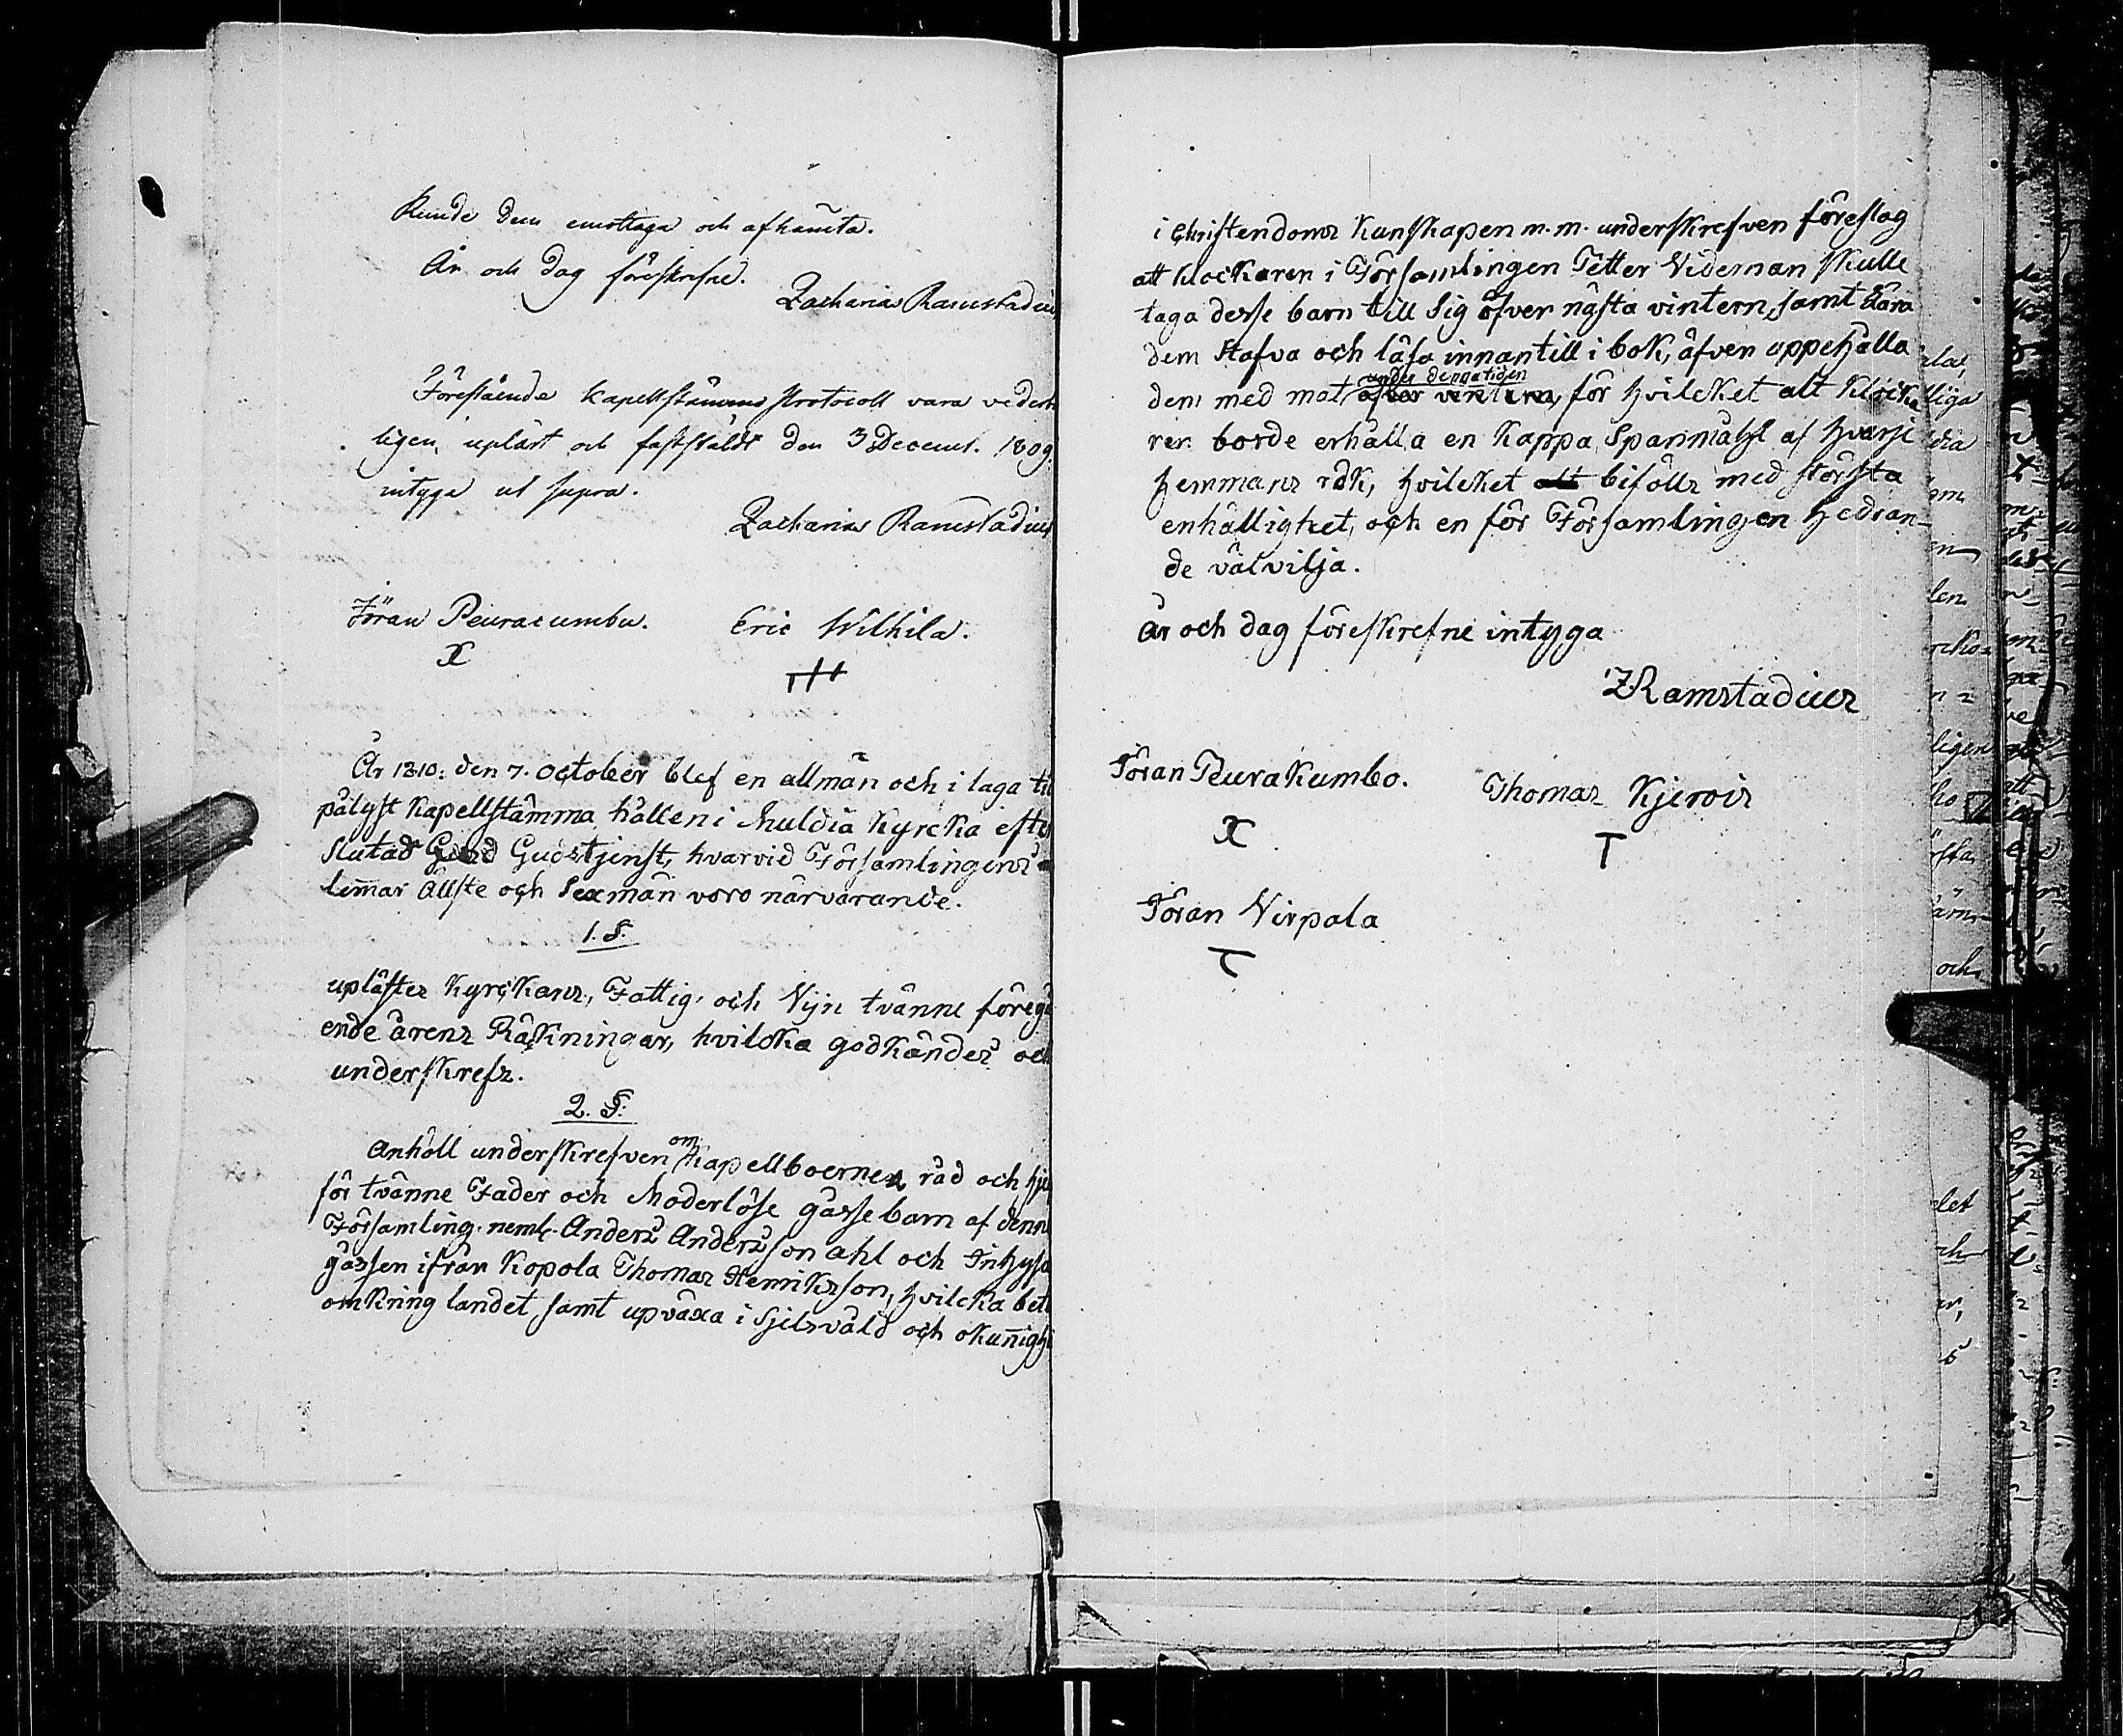 Kunde dem emottaga och afhämta.
År och dag föreskrefne.
Zacharias Ramstadius
Förestående Kapellstämmo Protocoll vara veder
ligen uplärt och fastställdt den 3 Decemb. 1809.
intyga ut supra.
Zacharias Ramstadius
Jöran Peuracumbu. Eric Wilhila.
X
År 1810: den 7. October blef en allmän och i laga tid
pålyst Kapellstämma hållen i Muldia Kyrcka efter
slutad Gud Gudstjenst, hvarvid Församlingens
lem̄ar Ällste och Sexmän voro närvarande.
1. §.
upläster Kyrckans, Fattig- och Vijn tvänne föregå
ende årens Räkningar, hvilcka godkändes och
underskrefs.
2. §:
Anhöll underskrefven om Kapellboernes råd och hjel
för tvänne Fader och Moderlöse gåsse barn af denna
Församling neml. Anders Andersson Ahl och Inhyse
gåssen ifrån Kopola Thomas Henriksson, hvilcka bet
omkring landet, samt upväxa i sjelsvåld och okun̄ighe
i Christendoms Kunskapen m.m. underskrefven föreslog
att klockaren i Församlingen Petter Videman skulle
taga desse barn till sig öfver nästa vintern, samt Lära
dem stafva och läsa innantill i bok, äfven uppehålla
under denna tiden
dem med mat öfver vintern, för hvilcket alt Klocka
ren borde erhålla en Kappa Spanmåhl af hvarje
hemmans rök, hvilcket alt biföllz med största
enhällighet, och en för Församlingen hedran-
de välvilja.
År och dag föreskrefne intyga
Z Ramstadius
Jöran Peurakumbo. Thomas Kjerois
X T
Jöran Virpala
T